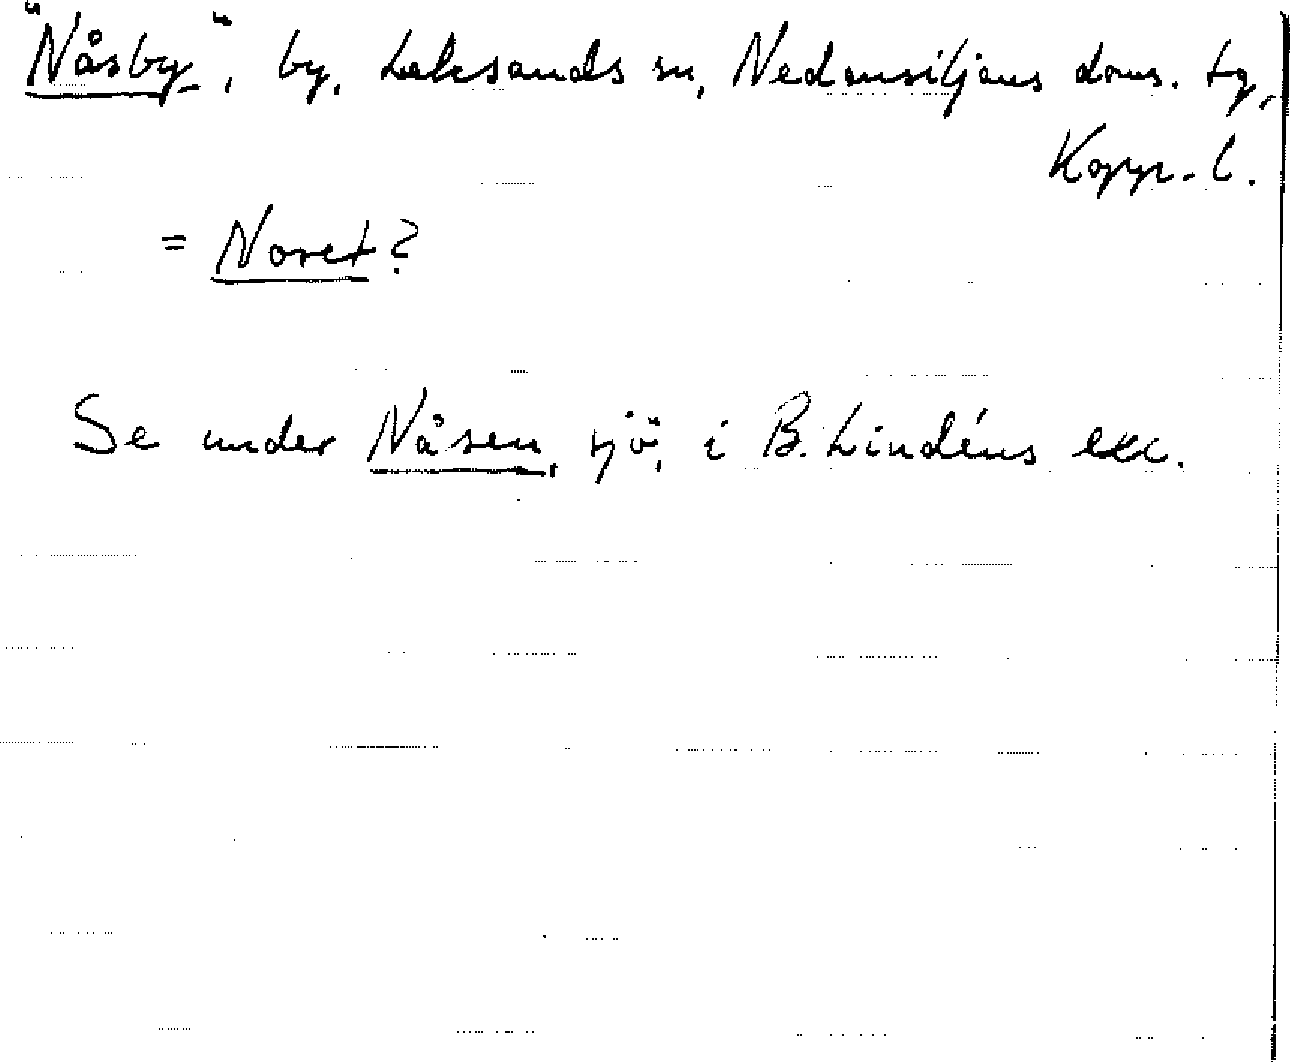 "Nåsby", by, Leksands sn, Nedansiljans doms. tg,
Kopp. l.
= Noret?
Se under Nåsen, sjö, i B. Lindéns exc.